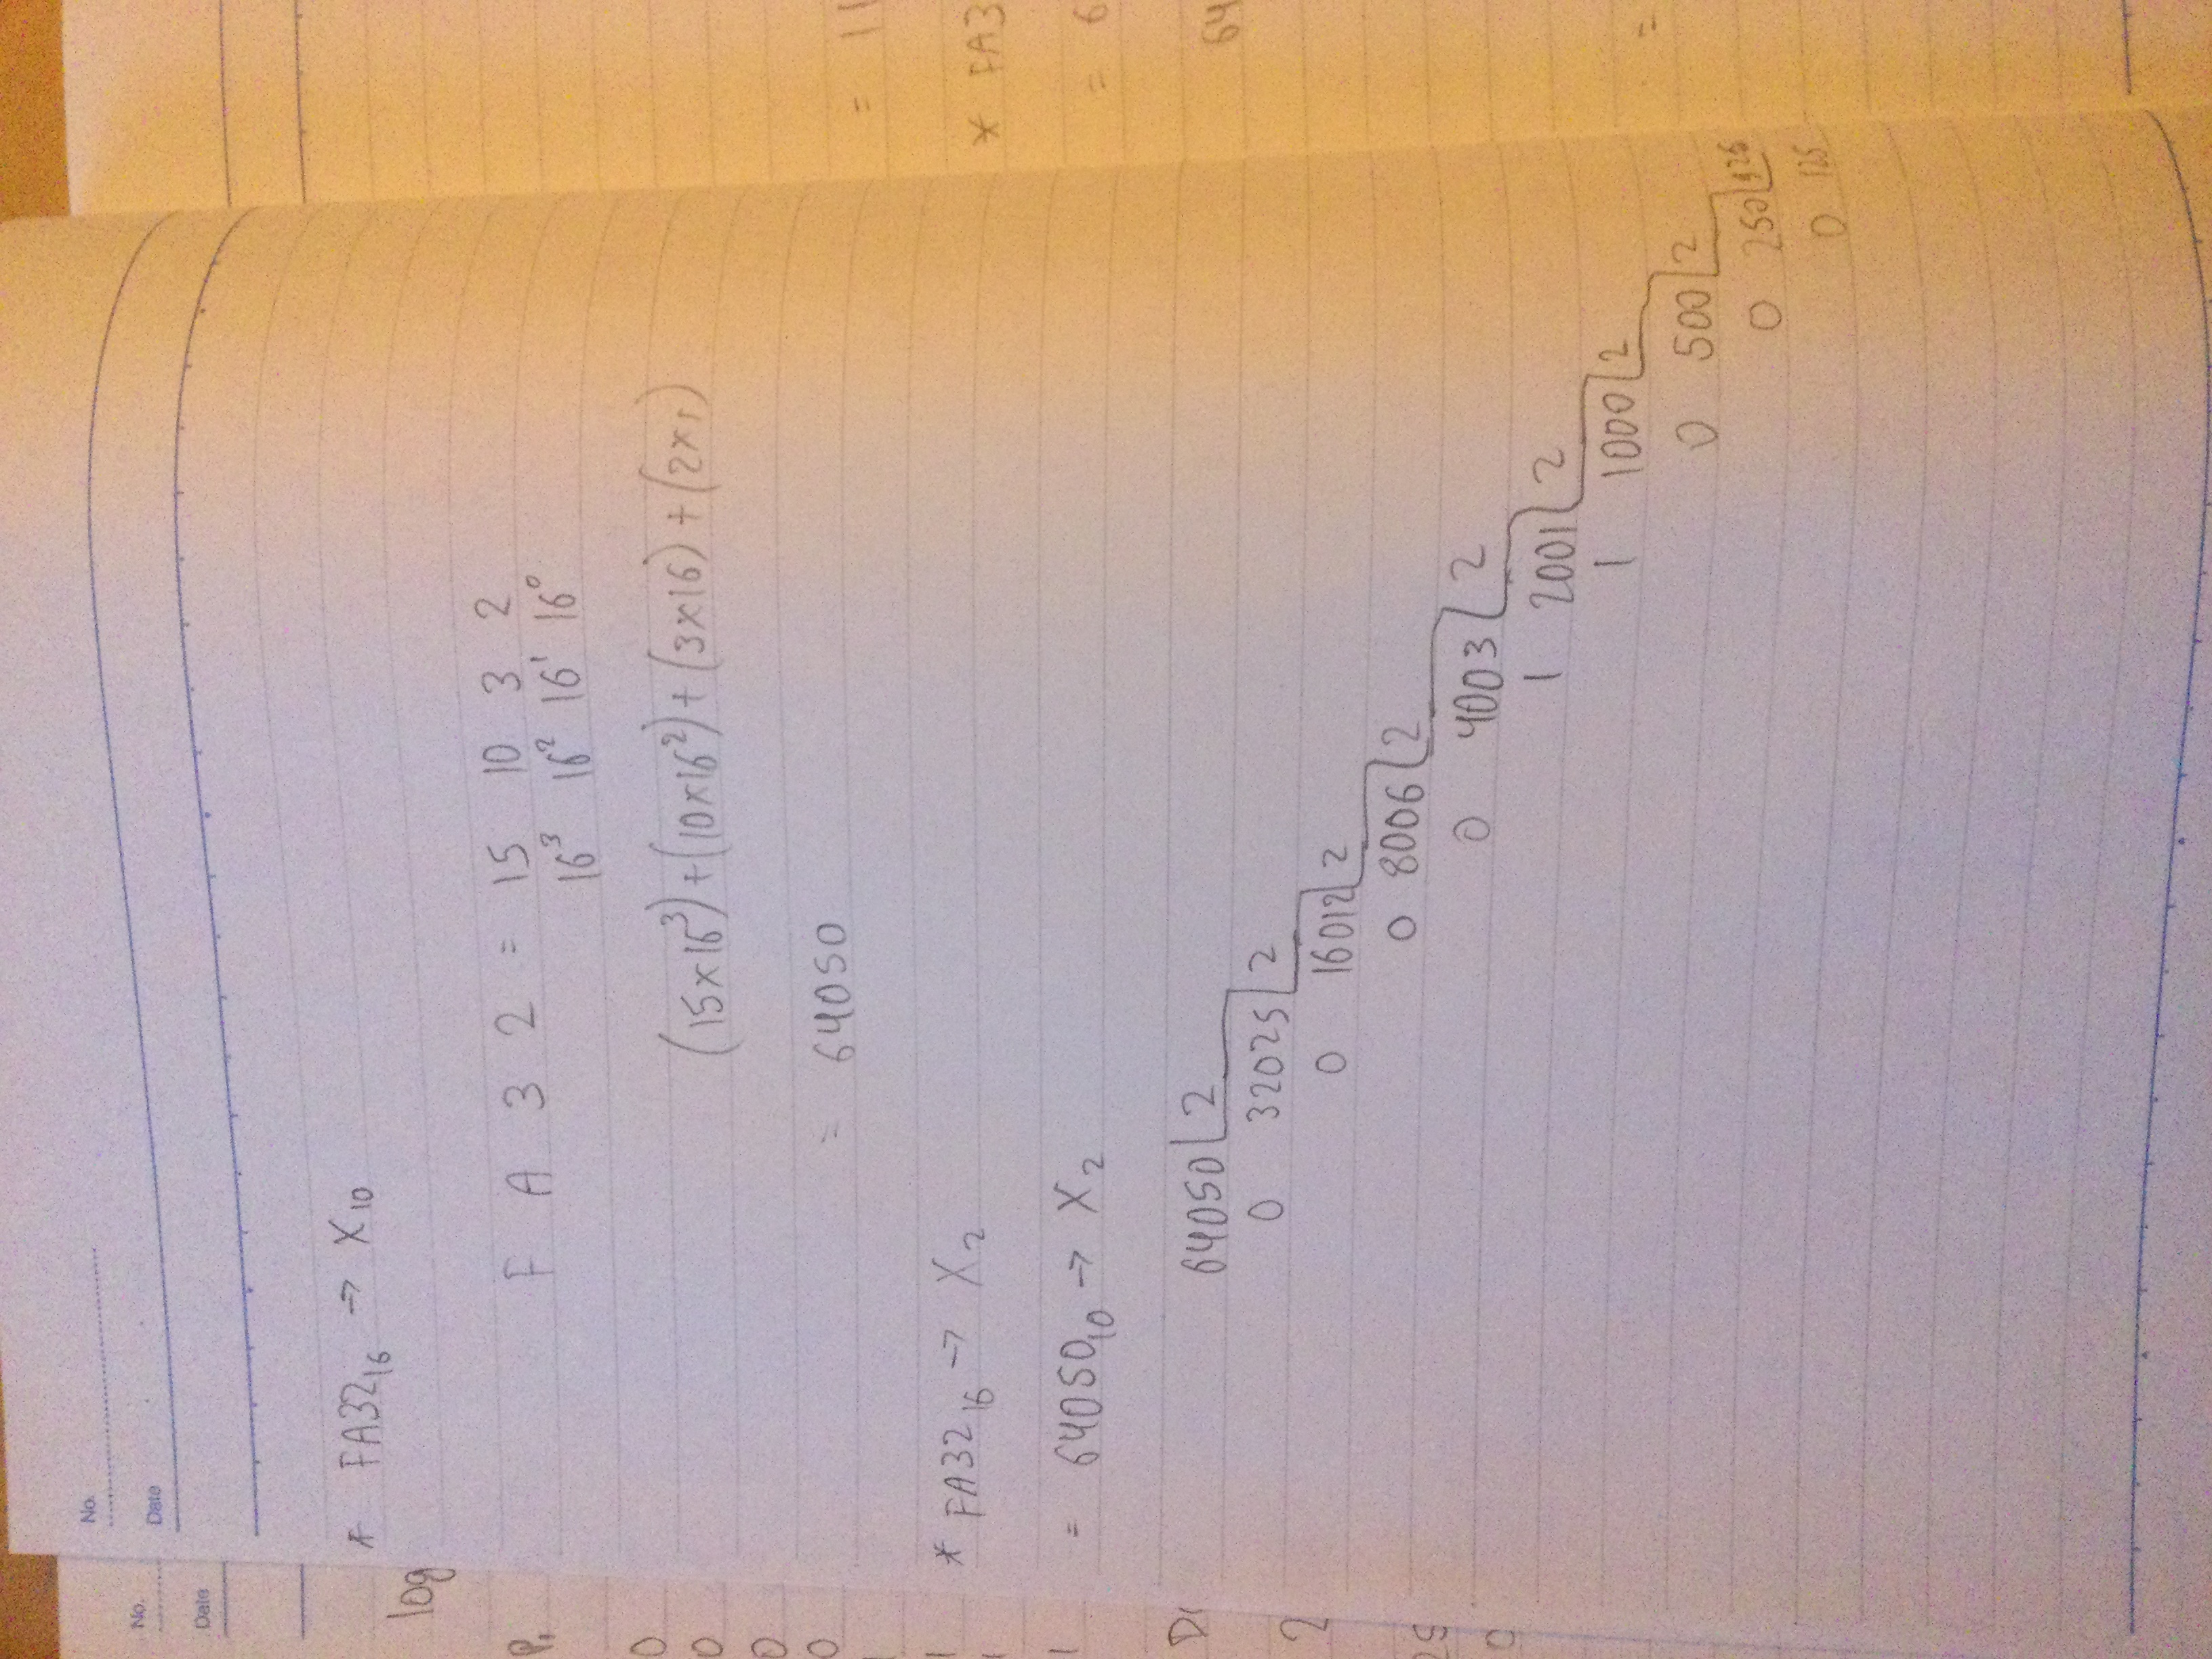 No.
Date
* FA32₁₆ → X₁₀
F A 3 2 = 15 10 3 2
16³ 16² 16¹ 16⁰
(15×16³)+(10×16²)+(3×16)+(2×1)
= 64050
* FA32₁₆ → X₂
= 64050₁₀ → X₂
64050 2
0 32025 2
0 16012 2
0 8006 2
0 4003 2
1 2001 2
1 1000 2
0 500 2
0 250 125
0 125
No.
Date
log
P₁
0
0
0
0
1
1
1
1
2
25
0
= 11
* FA3
= 6
64
=